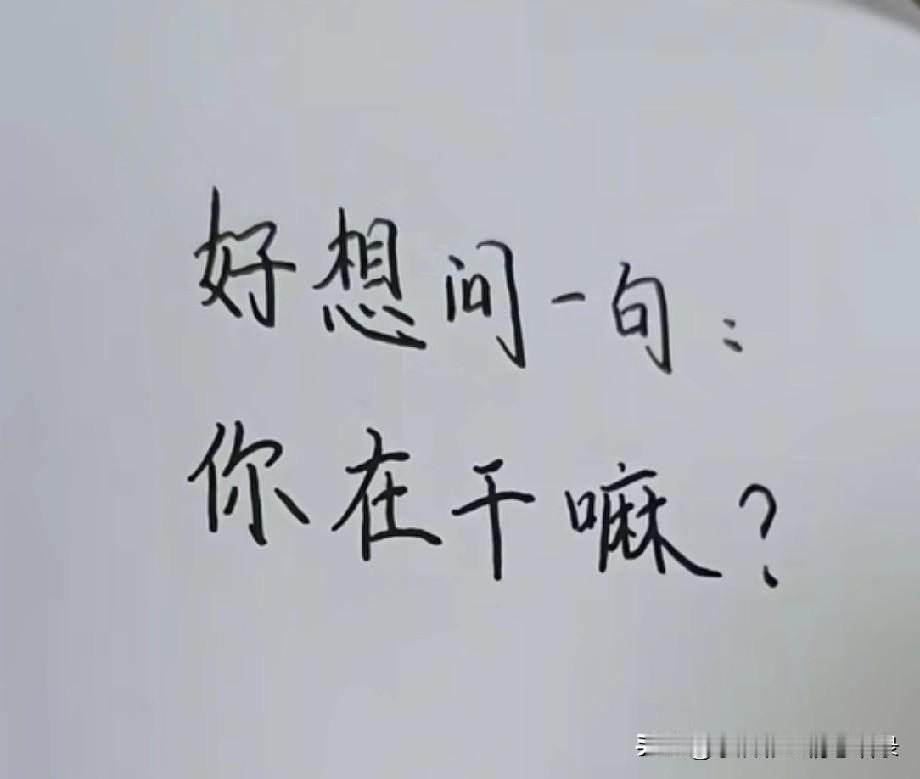 好想问一句：
你在干嘛？